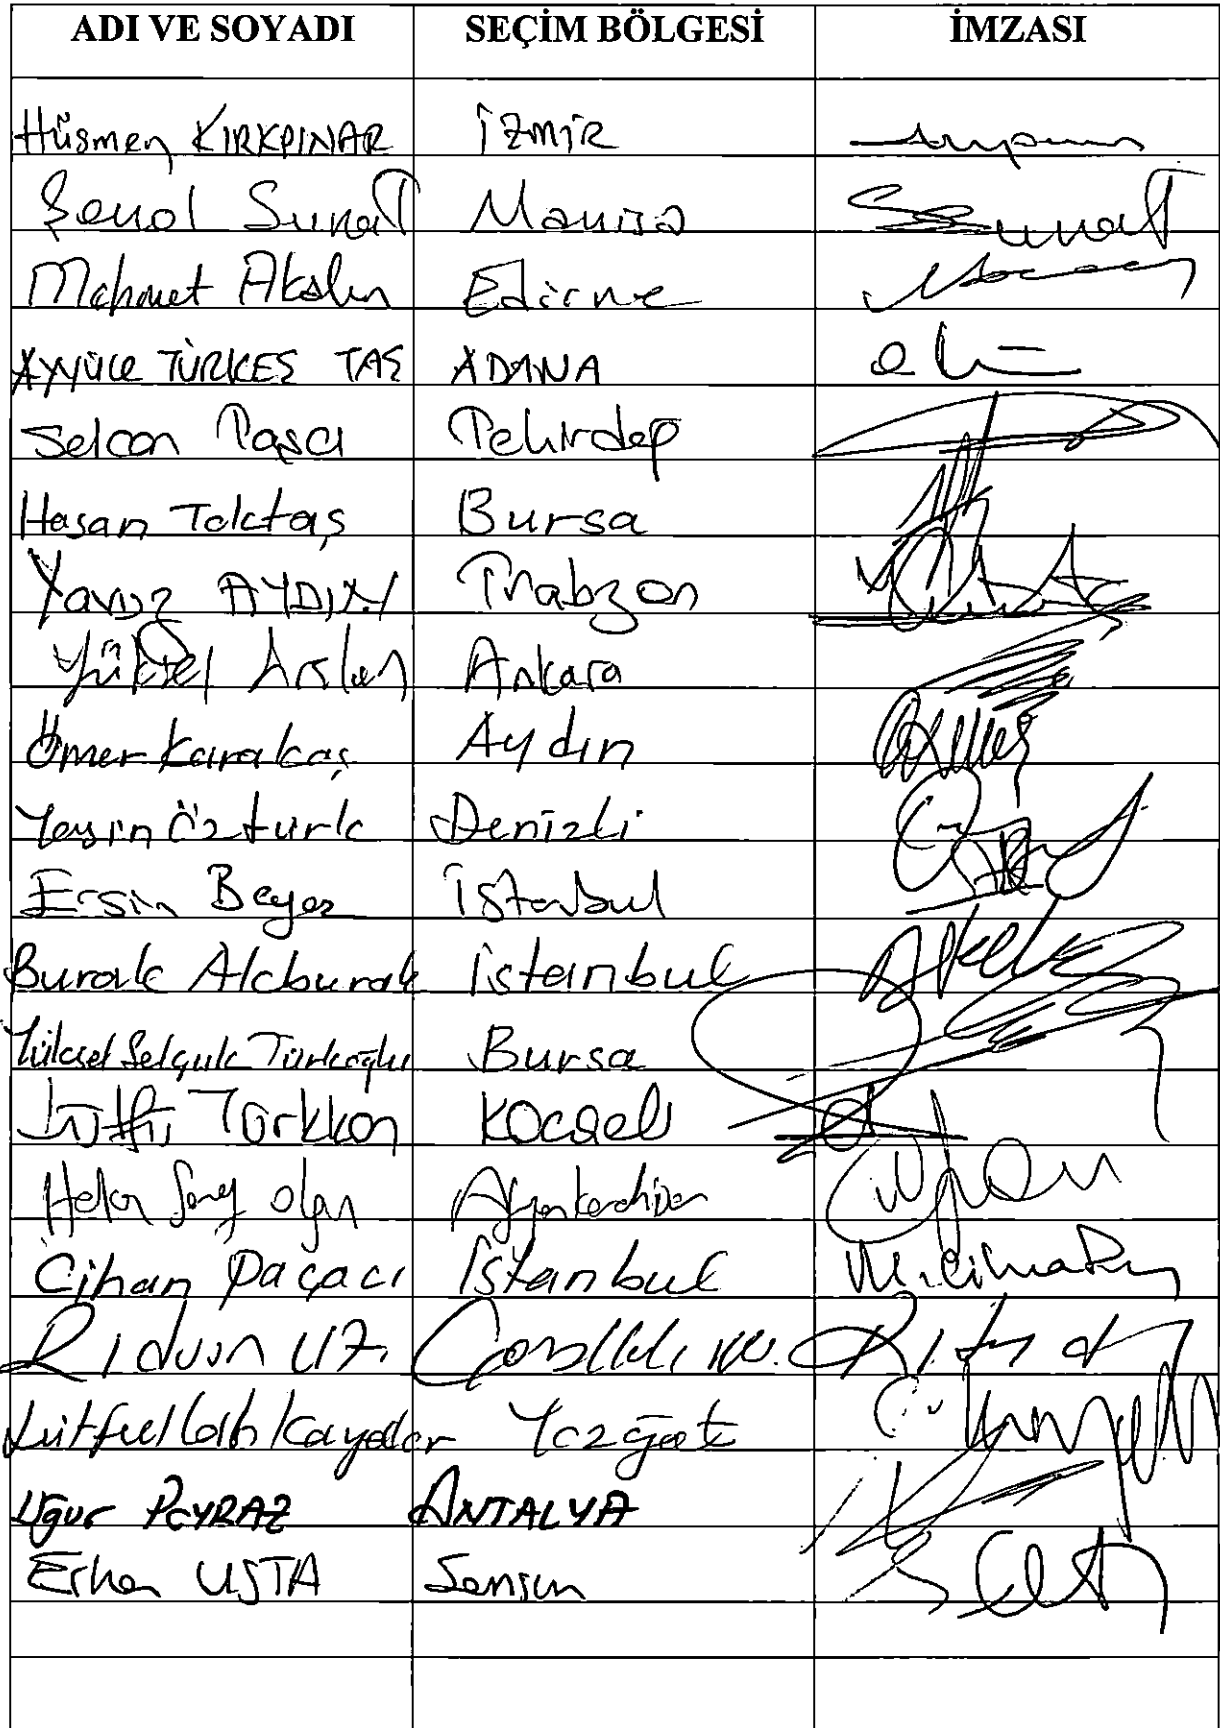 ADI VE SOYADI SEÇİM BÖLGESİ İMZASI
Hüsmen KIRKPINAR İZMİR
Şenol Sunat Manisa
Mehmet Akalın Edirne
AYYÜCE TÜRKEŞ TAŞ ADANA
Selcan Taşcı Tekirdağ
Hasan Toktaş Bursa
Yavuz AYDIN Trabzon
Yüksel Arslan Ankara
Ömer Karakaş Aydın
Yasin Öztürk Denizli
Ersin Beyaz İstanbul
Burak Akburak İstanbul
Yüksel Selçuk Türkoğlu Bursa
Lütfü Türkkan KOCAELİ
Hakan Şeref Olgun Afyonkarahisar
Cihan Paçacı İstanbul
Rıdvan UZ Çanakkale
Lütfullah Kayalar Yozgat
Uğur POYRAZ ANTALYA
Erhan USTA Samsun